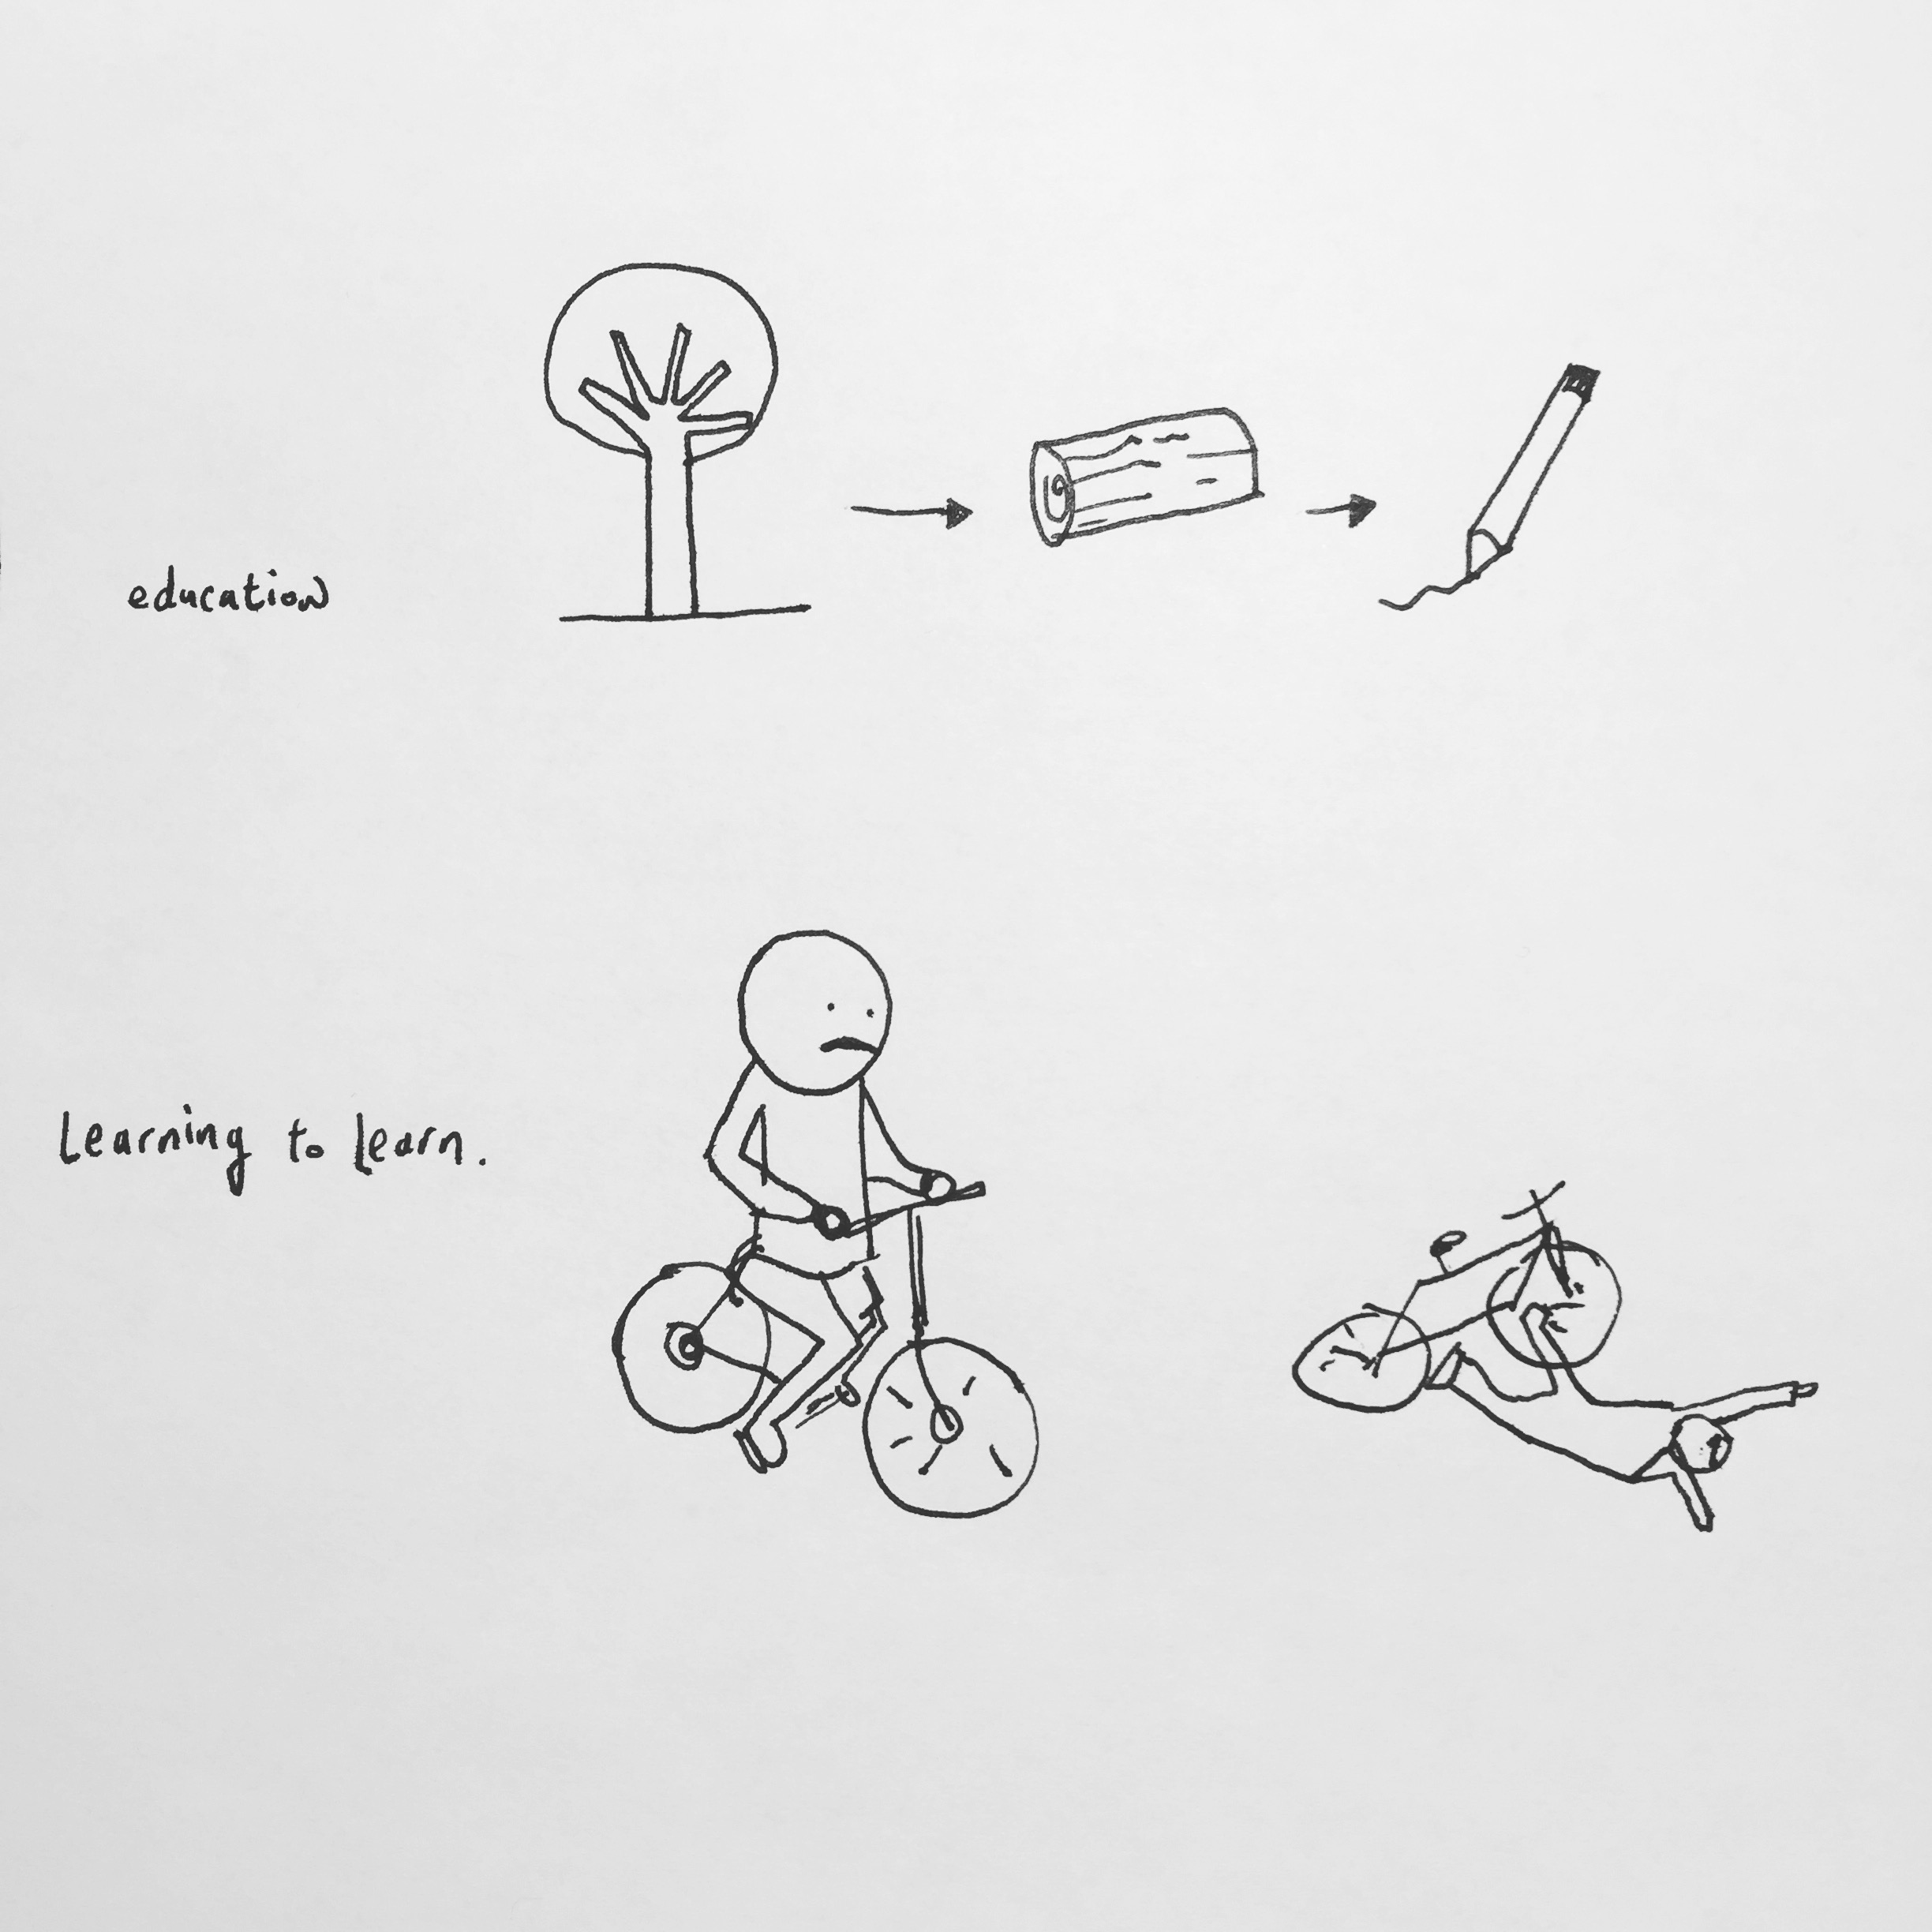 education
Learning to learn.